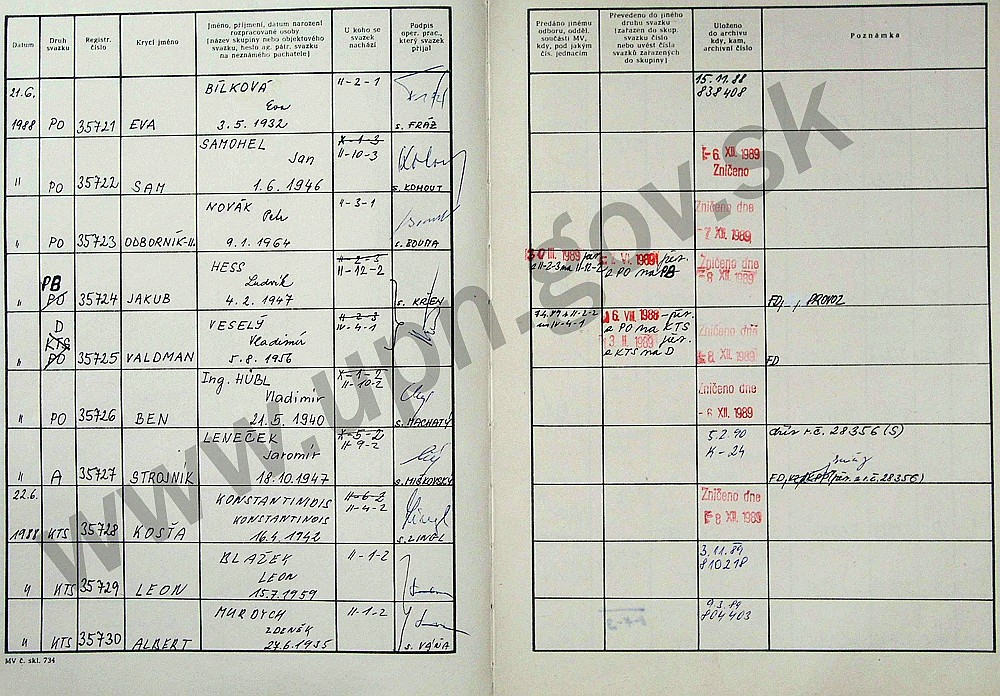 Datum
Druh
svazku
Registr.
číslo
Krycí jméno
Jméno, příjmení, datum narození
rozpracované osoby
[název skupiny nebo objektového
svazku, heslo ag. pátr. svazku
na neznámého pachatele]
U koho se
svazek
nachází
Podpis
oper. prac.,
který svazek
přijal
Předáno jinému
odboru, odděl.
součásti MV,
kdy, pod jakým
čís. jednacím
Převedeno do jiného
druhu svazku
[zařazen do skup.
svazku číslo
nebo uvést čísla
svazků zařazených
do skupiny]
Uloženo
do archivu
kdy, kam,
archivní číslo
Poznámka
21.6.
1988 PO 35721 EVA
BÍLKOVÁ
Eva
3. 5. 1932
II-2-1
s. FRÁZ
15.11.88
838408
" PO 35722 SAM
SAMOHEL
Jan
1.6. 1946
X-1-3
II-10-3
s. KOHOUT
6. XII. 1989
Zničeno
" PO 35723 ODBORNÍK-II.
NOVÁK
Petr
9.1. 1964
II-3-1
s. BOUMA
Zničeno dne
-7. XII. 1989
PB
" PO 35724 JAKUB
HESS
Ludvík
4. 2. 1947
II-2-3
II-12-2
s. KŘEN
30 III. 1989 přev.
z II-2-3 na II-12-2
VI. 1989 přev.
z PO na PB
Zničeno dne
8 XII. 1989
FD, PROVOZ
D
KTS
" PO 35725 VALDMAN
VESELÝ
Vladimír
5.8. 1956
II-2-3
IV-4-1
z II-2-2
na IV-4-1
6. VIII. 1988 - přev.
z PO na KTS
3 II. 1989 přev.
z KTS na D
Zničeno dne
8 XII. 1989
FD
" PO 35726 BEN
Ing. HÜBL
Vladimír
21.5. 1940
X-1-2
II-10-2
s. MACHATÝ
Zničeno dne
- 6 XII. 1989
" A 35727 STROJNÍK
LENEČEK
Jaromír
18.10.1947
X-5-2
II-9-2
s. MIŠKOVSKÝ
5.2.90
K-24
dův r.č. 28356 (S)
22.6.
1988 KTS 35728 KOSŤA
KONSTANTINOIS
KONSTANTINOIS
16.4. 1942
II-6-2
II-4-2
s. LINGL
Zničeno dne
8 XII. 1989
" KTS 35729 LEON
BLAŽEK
LEON
15.7.1959
II-1-2
3.11.89
810218
" KTS 35730 ALBERT
MURDYCH
ZDENĚK
27.6.1935
II-1-2
s. VÁŇA
9.3.89
804403
MV č. skl. 734
www.upn.gov.sk